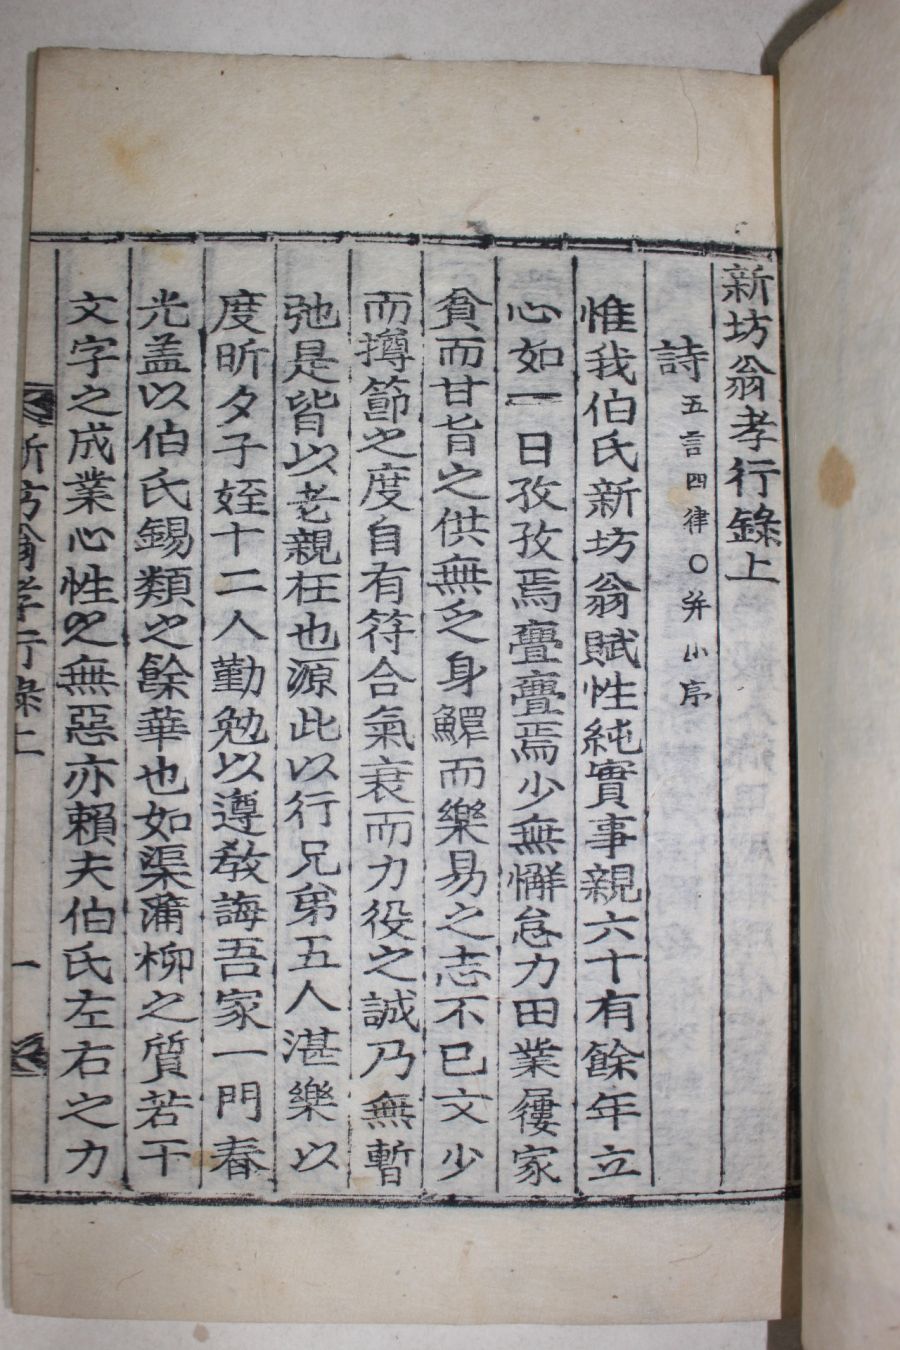 新坊翁孝行錄上
詩五言四律○并小序
惟我伯氏新坊翁賦性純實事親六十有餘年立
心如一日孜孜焉亹亹焉少無懈怠力田業屢家
貧而甘旨之供無乏身鱓而樂易之志不已文少
而撙節之度自有符合氣衰而力役之誠乃無暫
弛是皆以老親在也源此以行兄弟五人湛樂以
度昕夕子姪十二人勤勉以遵教誨吾家一門春
光盖以伯氏錫類之餘華也如渠蒲柳之質若干
文字之成業心性之無惡亦賴夫伯氏左右之力
新坊翁孝行錄上 一